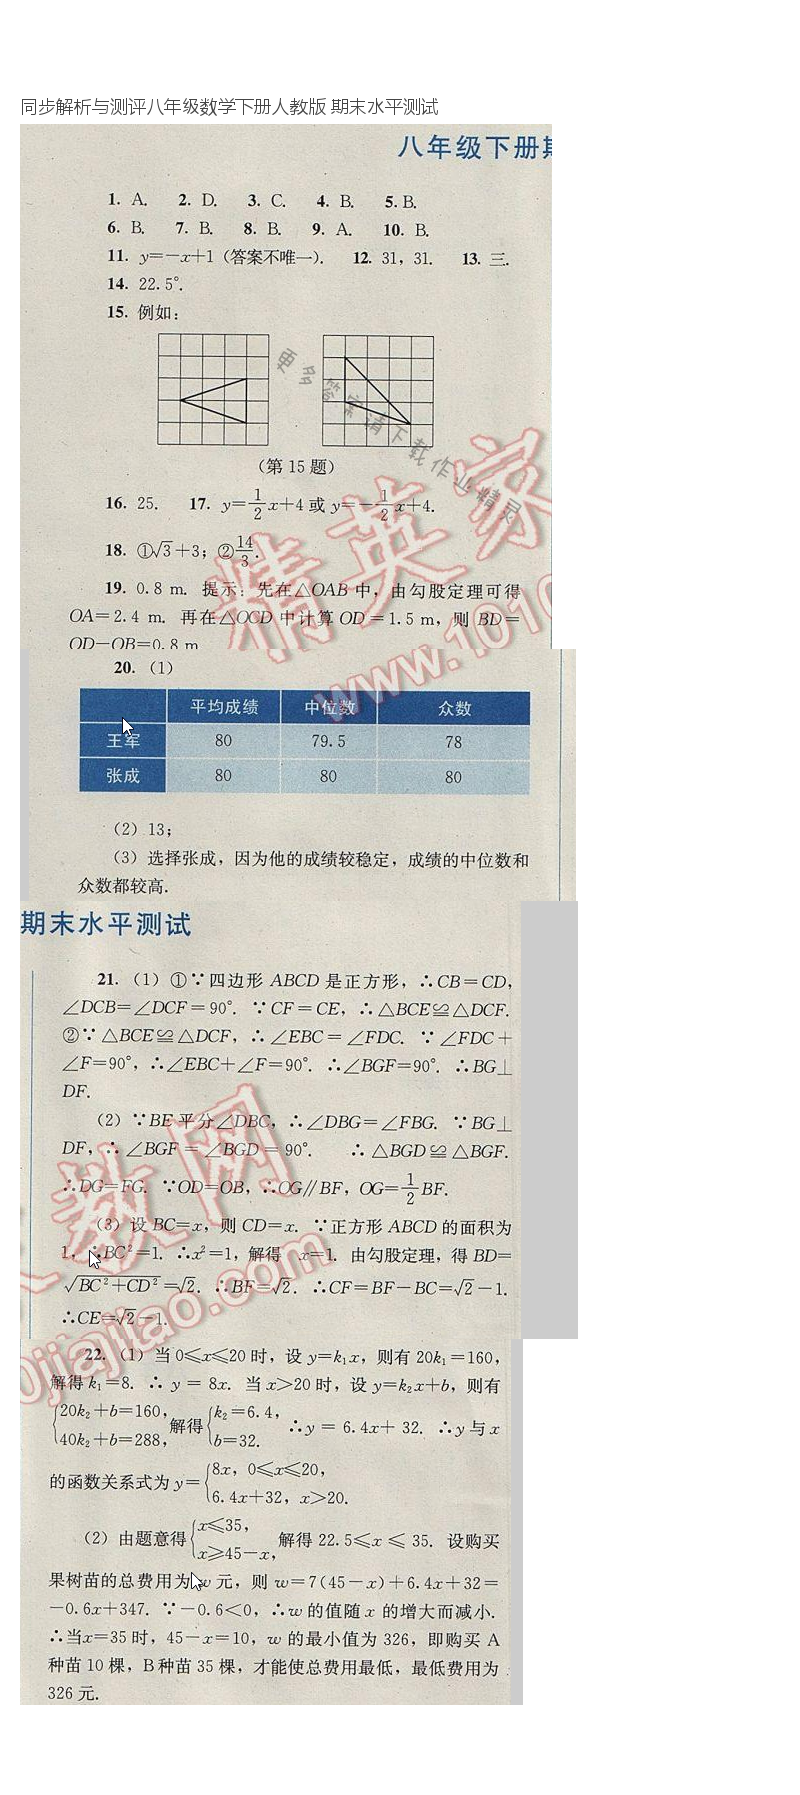 同步解析与测评八年级数学下册人教版 期末水平测试
八年级下册
1. A. 2. D. 3. C. 4. B. 5. B.
6. B. 7. B. 8. B. 9. A. 10. B.
11. y=-x+1 (答案不唯一). 12. 31, 31. 13. 三.
14. 22.5°.
15. 例如:
更多答案请下载作业精灵
(第 15 题)
16. 25. 17. y=1/2 x+4 或 y=-1/2 x+4.
18. ①√3+3; ②14/3.
19. 0.8 m. 提示: 先在△OAB 中, 由勾股定理可得
OA=2.4 m. 再在△OCD 中计算 OD=1.5 m, 则 BD=
OD-OB=0.8 m
精英家
www.1010
20. (1)
平均成绩 中位数 众数
王军 80 79.5 78
张成 80 80 80
(2) 13;
(3) 选择张成, 因为他的成绩较稳定, 成绩的中位数和
众数都较高.
期末水平测试
21. (1) ①∵四边形 ABCD 是正方形, ∴CB=CD,
∠DCB=∠DCF=90°. ∵CF=CE, ∴△BCE≌△DCF.
②∵△BCE≌△DCF, ∴∠EBC=∠FDC. ∵∠FDC+
∠F=90°, ∴∠EBC+∠F=90°. ∴∠BGF=90°. ∴BG⊥
DF.
(2) ∵BE 平分∠DBC, ∴∠DBG=∠FBG. ∵BG⊥
DF, ∴∠BGF=∠BGD=90°. ∴△BGD≌△BGF.
∴DG=FG. ∵OD=OB, ∴OG∥BF, OG=1/2 BF.
(3) 设 BC=x, 则 CD=x. ∵正方形 ABCD 的面积为
1, ∴BC²=1. ∴x²=1, 解得 x=1. 由勾股定理, 得 BD=
√(BC²+CD²)=√2. ∴BF=√2. ∴CF=BF-BC=√2-1.
∴CE=√2-1.
教网
0jiajiao.com
22. (1) 当 0≤x≤20 时, 设 y=k₁x, 则有 20k₁=160,
解得 k₁=8. ∴y=8x. 当 x>20 时, 设 y=k₂x+b, 则有
{20k₂+b=160, 40k₂+b=288, 解得 {k₂=6.4, b=32. ∴y=6.4x+32. ∴y 与 x
的函数关系式为 y={8x, 0≤x≤20, 6.4x+32, x>20.
(2) 由题意得 {x≤35, x≥45-x, 解得 22.5≤x≤35. 设购买
果树苗的总费用为 w 元, 则 w=7(45-x)+6.4x+32=
-0.6x+347. ∵-0.6<0, ∴w 的值随 x 的增大而减小.
∴当x=35 时, 45-x=10, w 的最小值为 326, 即购买 A
种苗 10 棵, B种苗 35 棵, 才能使总费用最低, 最低费用为
326 元.